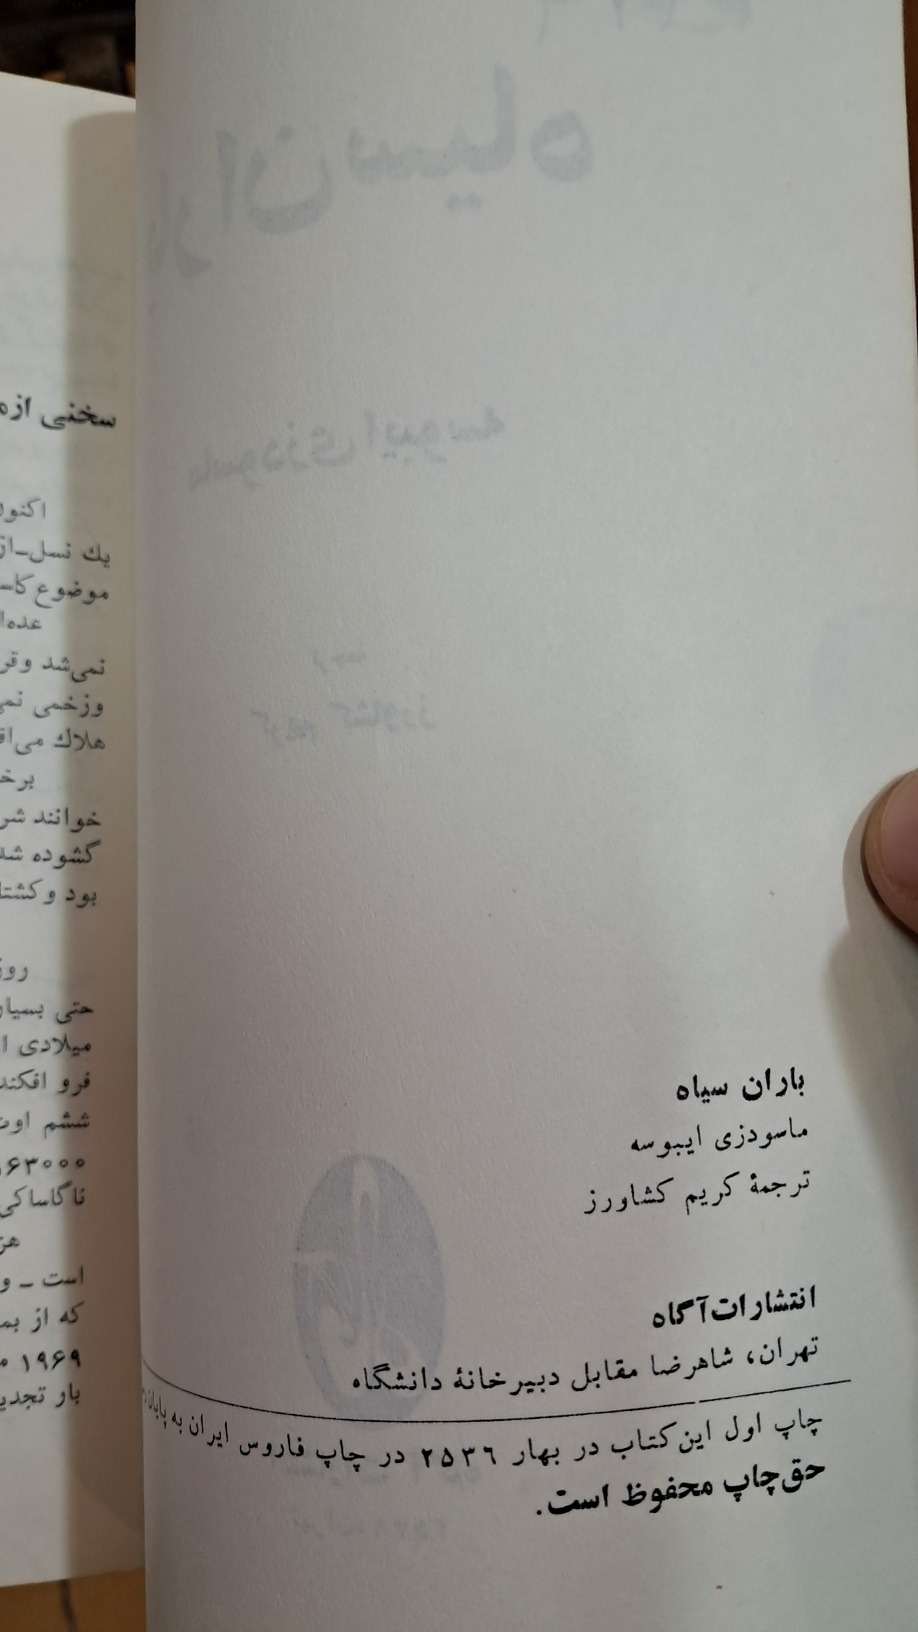 باران سیاه
ماسودزی ایبوسه
ترجمهٔ کریم کشاورز
انتشارات آگاه
تهران، شاهرضا مقابل دبیرخانهٔ دانشگاه
چاپ اول این کتاب در بهار ۲۵۳۶ در چاپ فاروس ایران به پایان
حق چاپ محفوظ است.
سخنی از
اکنون
یك نسل-از
موضوع کا-
عده‌ا
نمی‌شد وقر
وزخمی نمی
هلاك می‌اف
برخ
خوانند شر
گشوده شد
بود و کشتا
روز
حتی بسیار
میلادی ا
فرو افکند
ششم اوت
۶۳۰۰۰
ناگاساکی
هز
است - و
که از بم
۱۹۶۹
بار تجدی